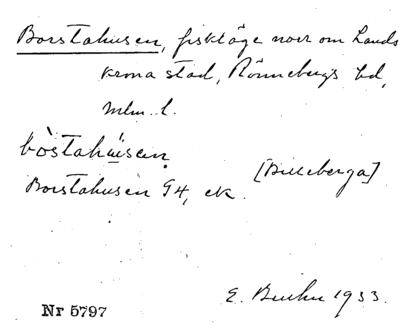 Borstahusen, fiskläge norr om Lands
krona stad, Rönnebergs hd,
mlm. l.
bòstahùsen
[Billeberga]
Borstahusen G4, ek.
E. 1933
Nr 5797